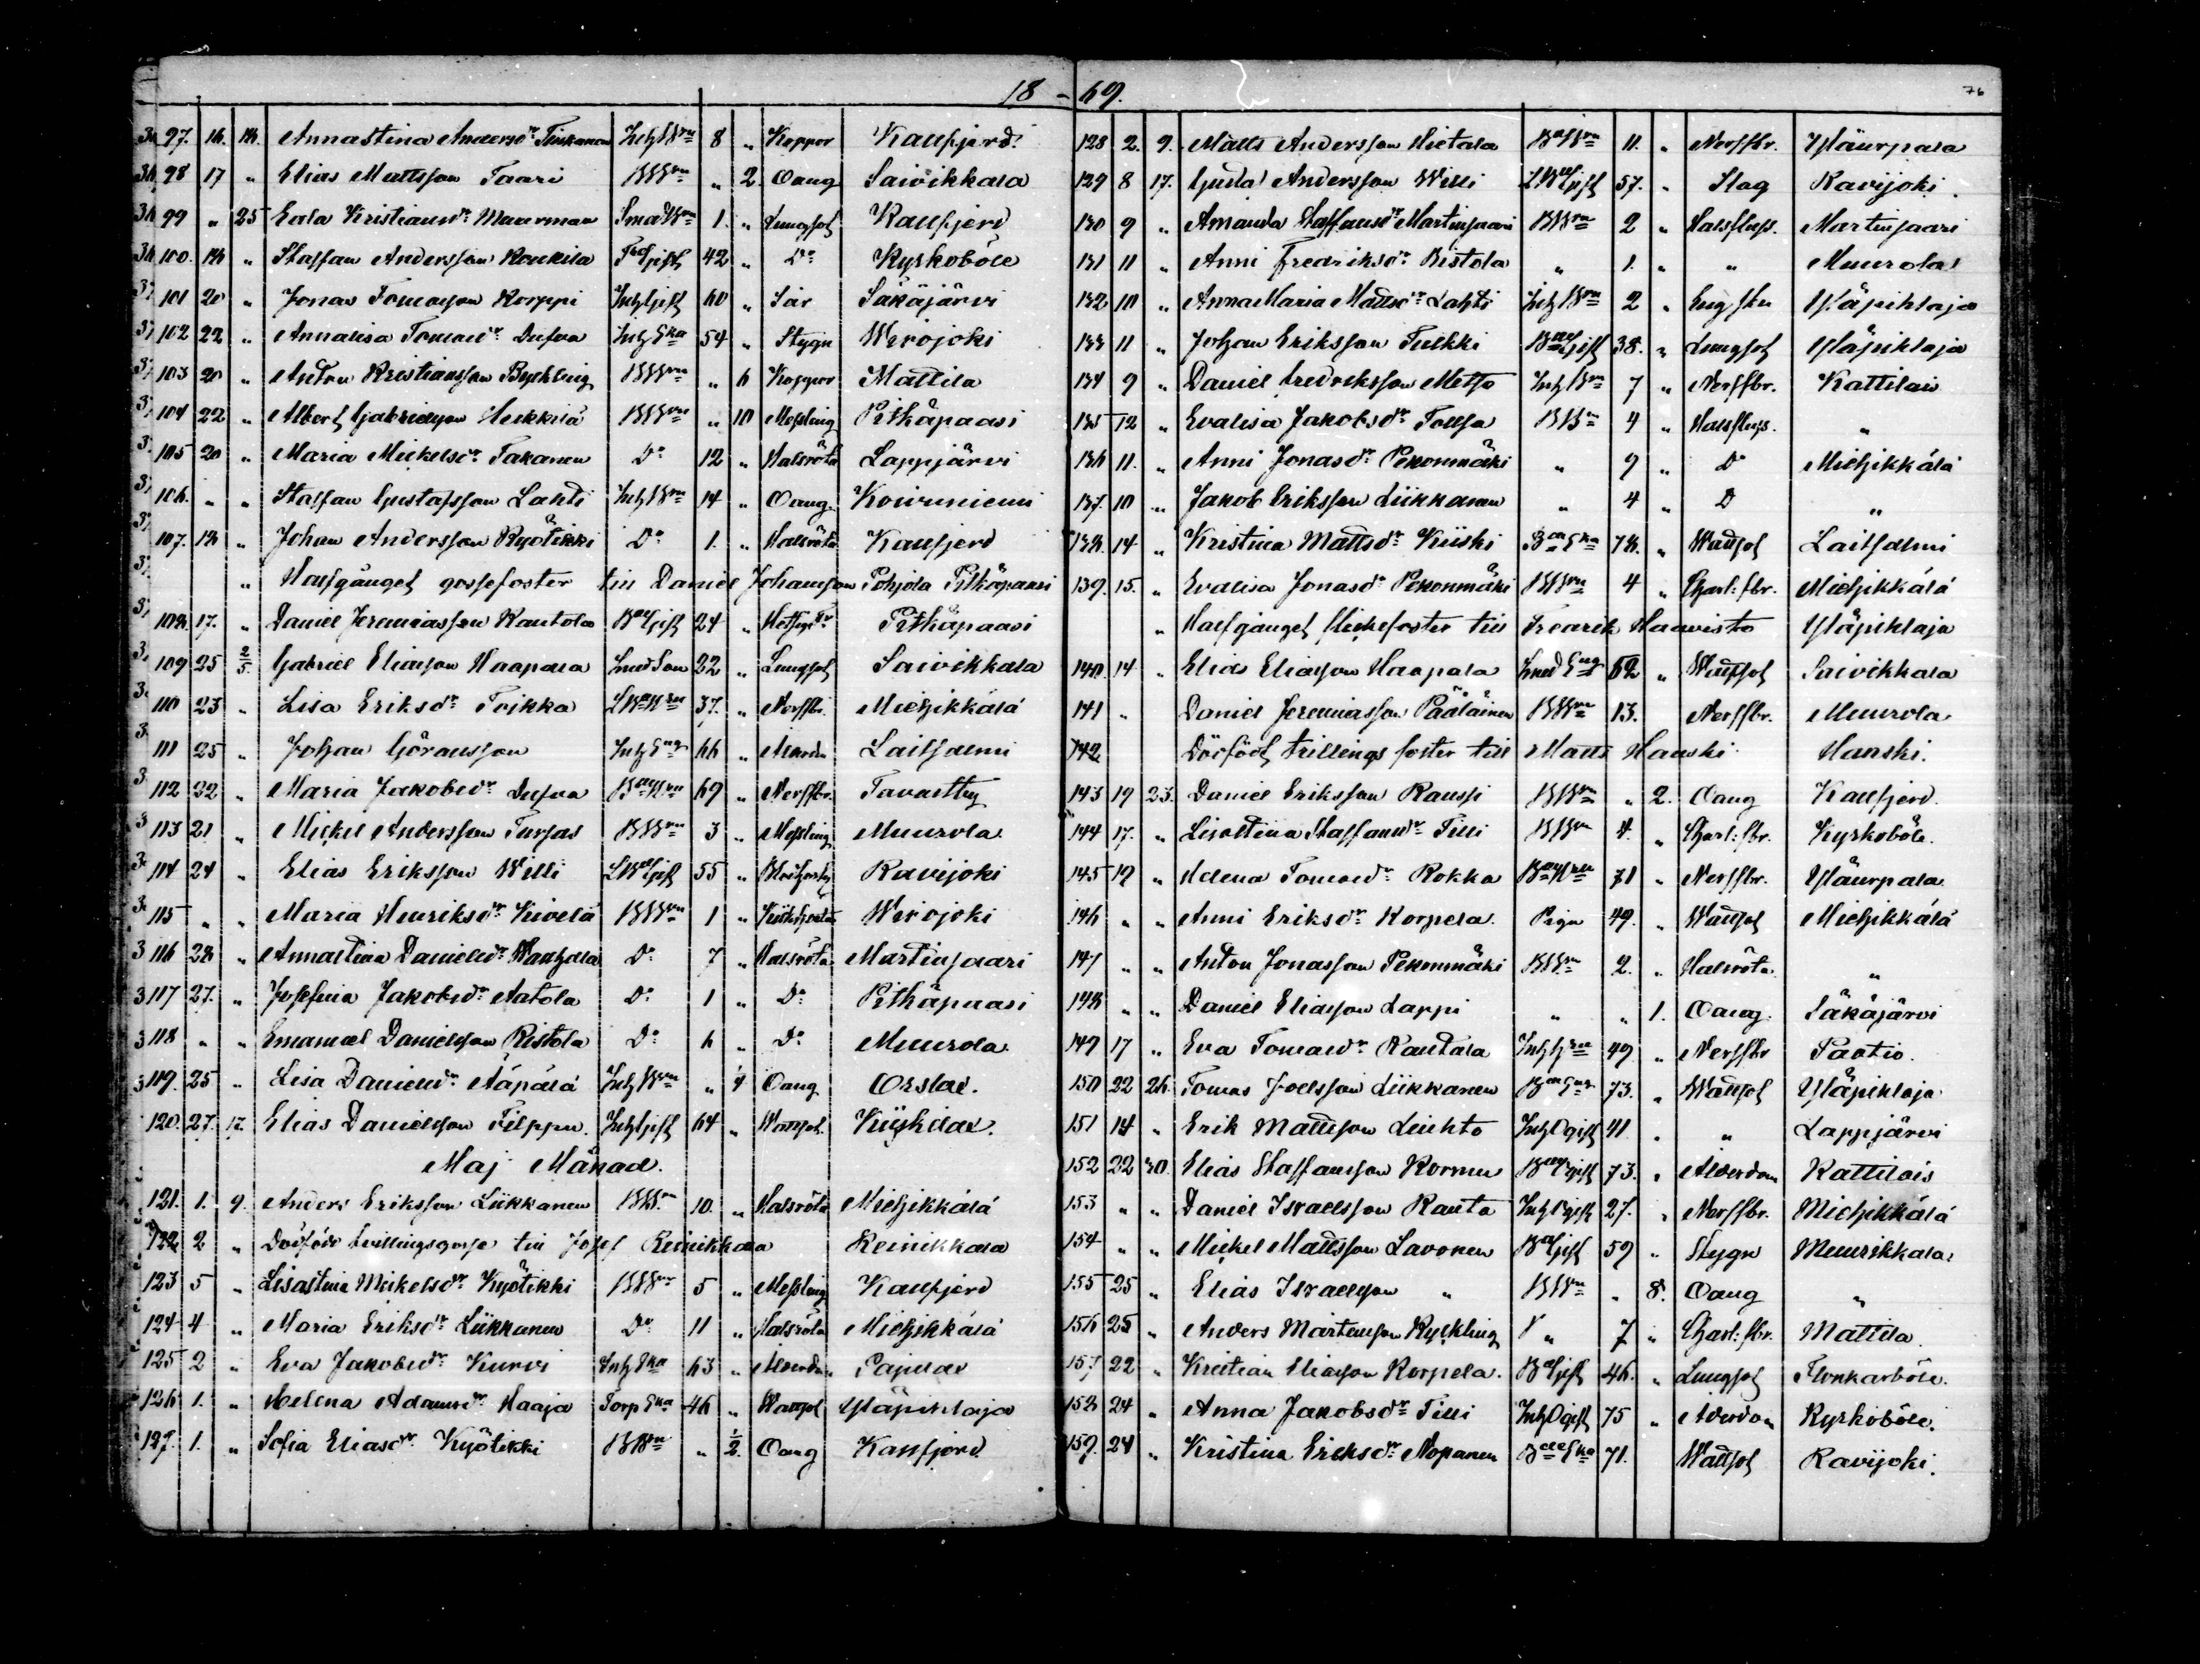 18 - 69.
76
97. 16. 18. Annastina Andersdr Tiiskanen Inhysbrn 8 " Koppor Kalfjerd
98 17 " Elias Mattsson Taari BBrn " 2 Oäng Saivikkala
99 " 25 Eeda Kristiansdr Muurman Smed Brn 1. " Lungsot Kalfjerd
100. 18 " Staffan Andersson Koukila gift 42 " Do Kyrkoböle
101 20 " Jonas Tomasson Korppi Inhgift 60 " Sår Säkäjärvi
102 22 " Annalisa Tomasdr Dufva Inh Eka 54 " Stygn Werojoki
103 20 " Anton Kristiansson Byckling BBrn " 6 Koppor Mattila
104 22 " Albert Gabrielsson Heikkilä BBrn " 10 Messling Pitkäpaasi
105 20 " Maria Mickelsdr Takanen Do 12 " Halsröta Lappjärvi
106. " " Staffan Gustafsson Lahti Inh Brn 14 " Oäng Kouvuniemi
107. 18 " Johan Andersson Kyötikki Do 1. " Halsröta Kalfjerd
" Halfgånget gossefoster till Daniel Johansson Pohjola Pitkäpaasi
108. 17. " Daniel Jeremiasson Rantola gift 24 " Pitkäpaasi
109 25 2/5. Gabriel Eliasson Haapala Smed Son 22 " Lungsot Saivikkala
110 23 " Lisa Eriksdr Toikka 37. " Nerffbr. Miehikkälä
111 25 " Johan Göransson Inh Eng 66 " Ålderdm Laitsalmi
112 22 " Maria Jakobsdr Dufva 69 " Nerffbr. Tavastby
113 21 " Mickel Andersson Turfas BBrn 3 " Messling Muurola
114 24 " Elias Eriksson Willi gift 55 " Ravijoki
115 " " Maria Henriksdr Kivelä BBrn 1 " Kikhosta Werojoki
116 28 " Annastina Danielsdr Wanhala Do 7 " Halsröta Martinsaari
117 27. " Josefina Jakobsdr Aatola Do 1 " Do Pitkäpaasi
118 " " Emanuel Danielsson Ristola Do 6 " Do Muurola
119. 25 " Lisa Danielsdr Ääpälä Inh Brn " 4 Oäng Orslax.
120. 27. 17. Elias Danielsson Filppu Inhgift 64 " Wattsot. Kiiskilax.
Maj Månad.
121. 1. 9. Anders Eriksson Liikkanen BBrn 10. " Halsröta Miehikkälä
122 2 " Dödfödt tvillingsgosse till Josef Reinikkala Reinikkala
123 5 " Lisastina Mickelsdr Kyötikki BBrn 5 " Messling Kalfjerd
124 4 " Maria Eriksdr Liikkanen Do 11 " Halsröta Miehikkälä
125 2 " Eva Jakobsdr Kurvi Inh Eka 63 " Ålderdm Pajulax
126 1. " Helena Adamsdr Haaja Torp Eka 46 " Wattsot Yläpihlaja
127. 1. " Sofia Eliasdr Kyötikki BBrn " 1/2. Oäng Kalfjerd
128 2. 9. Matts Andersson Hietala 11. " Nerffbr. Yläurpala
129 8 17. Gustaf Andersson Willi gift 57. " Slag Ravijoki.
130 9 " Amanda Staffansdr Martinsaari BBrn 2 " Halsfluss. Martinsaari
131 11 " Anni Fredriksdr Ristola " 1. " " Muurola
132 10 " Anna Maria Mattsdr Lahti Inh Brn 2 " Yläpihlaja
133 11 " Johan Eriksson Tulkki gift 38. " Lungsot Yläpihlaja
134 9 " Daniel Fredriksson Metso Inh Brn 7 " Nerffbr. Kattilais
135 12 " Evalisa Jakobsdr Tolsa BBrn 4 " Halsfluss. "
136 11. " Anni Jonasdr Pekonmäki " 9 " Do Miehikkälä
137. 10 " Jakob Eriksson Liikkanen " 4 " D "
138. 14 " Kristina Mattsdr Kiiski 78. " Wattsot Laitsalmi
139. 15. " Evalisa Jonasdr Pekonmäki BBrn 4 " Charl: fbr. Miehikkälä
" Halfgånget flickefoster till Fredrik Haavisto Yläpihlaja
140. 14 " Elias Eliasson Haapala Smed Eng 62 " Wattsot Saivikkala
141 " Daniel Jeremiasson Pääläinen BBrn 13. Nerffbr. Muurola
142 Dödfödt trillings foster till Matts Hanski Hanski.
143 19 23. Daniel Eriksson Raussi BBrn " 2. Oäng Kalfjerd.
144 17. " Lisastina Staffansdr Tilli BBrn 4. " Charl: fbr. Kyrkoböle.
145 19 " Helena Tomasdr Rokka 71 " Nerffbr. Yläurpala
146 " " Anni Eriksdr Korpela. Piga 49. " Wattsot Miehikkälä
147 " " Anton Jonasson Pekonmäki BBrn 2. " Halsröta. "
148 " " Daniel Eliasson Lappi " " 1. Oäng. Säkäjärvi
149 17 " Eva Tomasdr Rantala 49 " Nerffbr Paatio.
150 22 26. Tomas Joelsson Liikkanen 73. " Wattsot Yläpihlaja
151 14 " Erik Mattsson Leuhto Inh Ogift 41 " " Lappjärvi
152 22 30. Elias Staffansson Kormu gift 73. " Ålderdom Kattilais
153 " " Daniel Israelsson Ranta Inh gift 27. " Nerffbr. Miehikkälä
154 " " Mickel Mattsson Lavonen gift 59 " Stygn Muurikkala.
155 25 " Elias Israelsson " BBrn " 8. Oäng "
156 25 " Anders Martensson Ryckling " 7 " Charl: fbr. Mattila
157 22 " Kristian Eliasson Korpela. gift 46. " Lungsot Flonkarböle.
158 24 " Anna Jakobsdr Tilli Inh Ogift 75 " Ålderdom Kyrkoböle.
159. 24 " Kristina Eriksdr Nopanen 71. Wattsot Ravijoki.